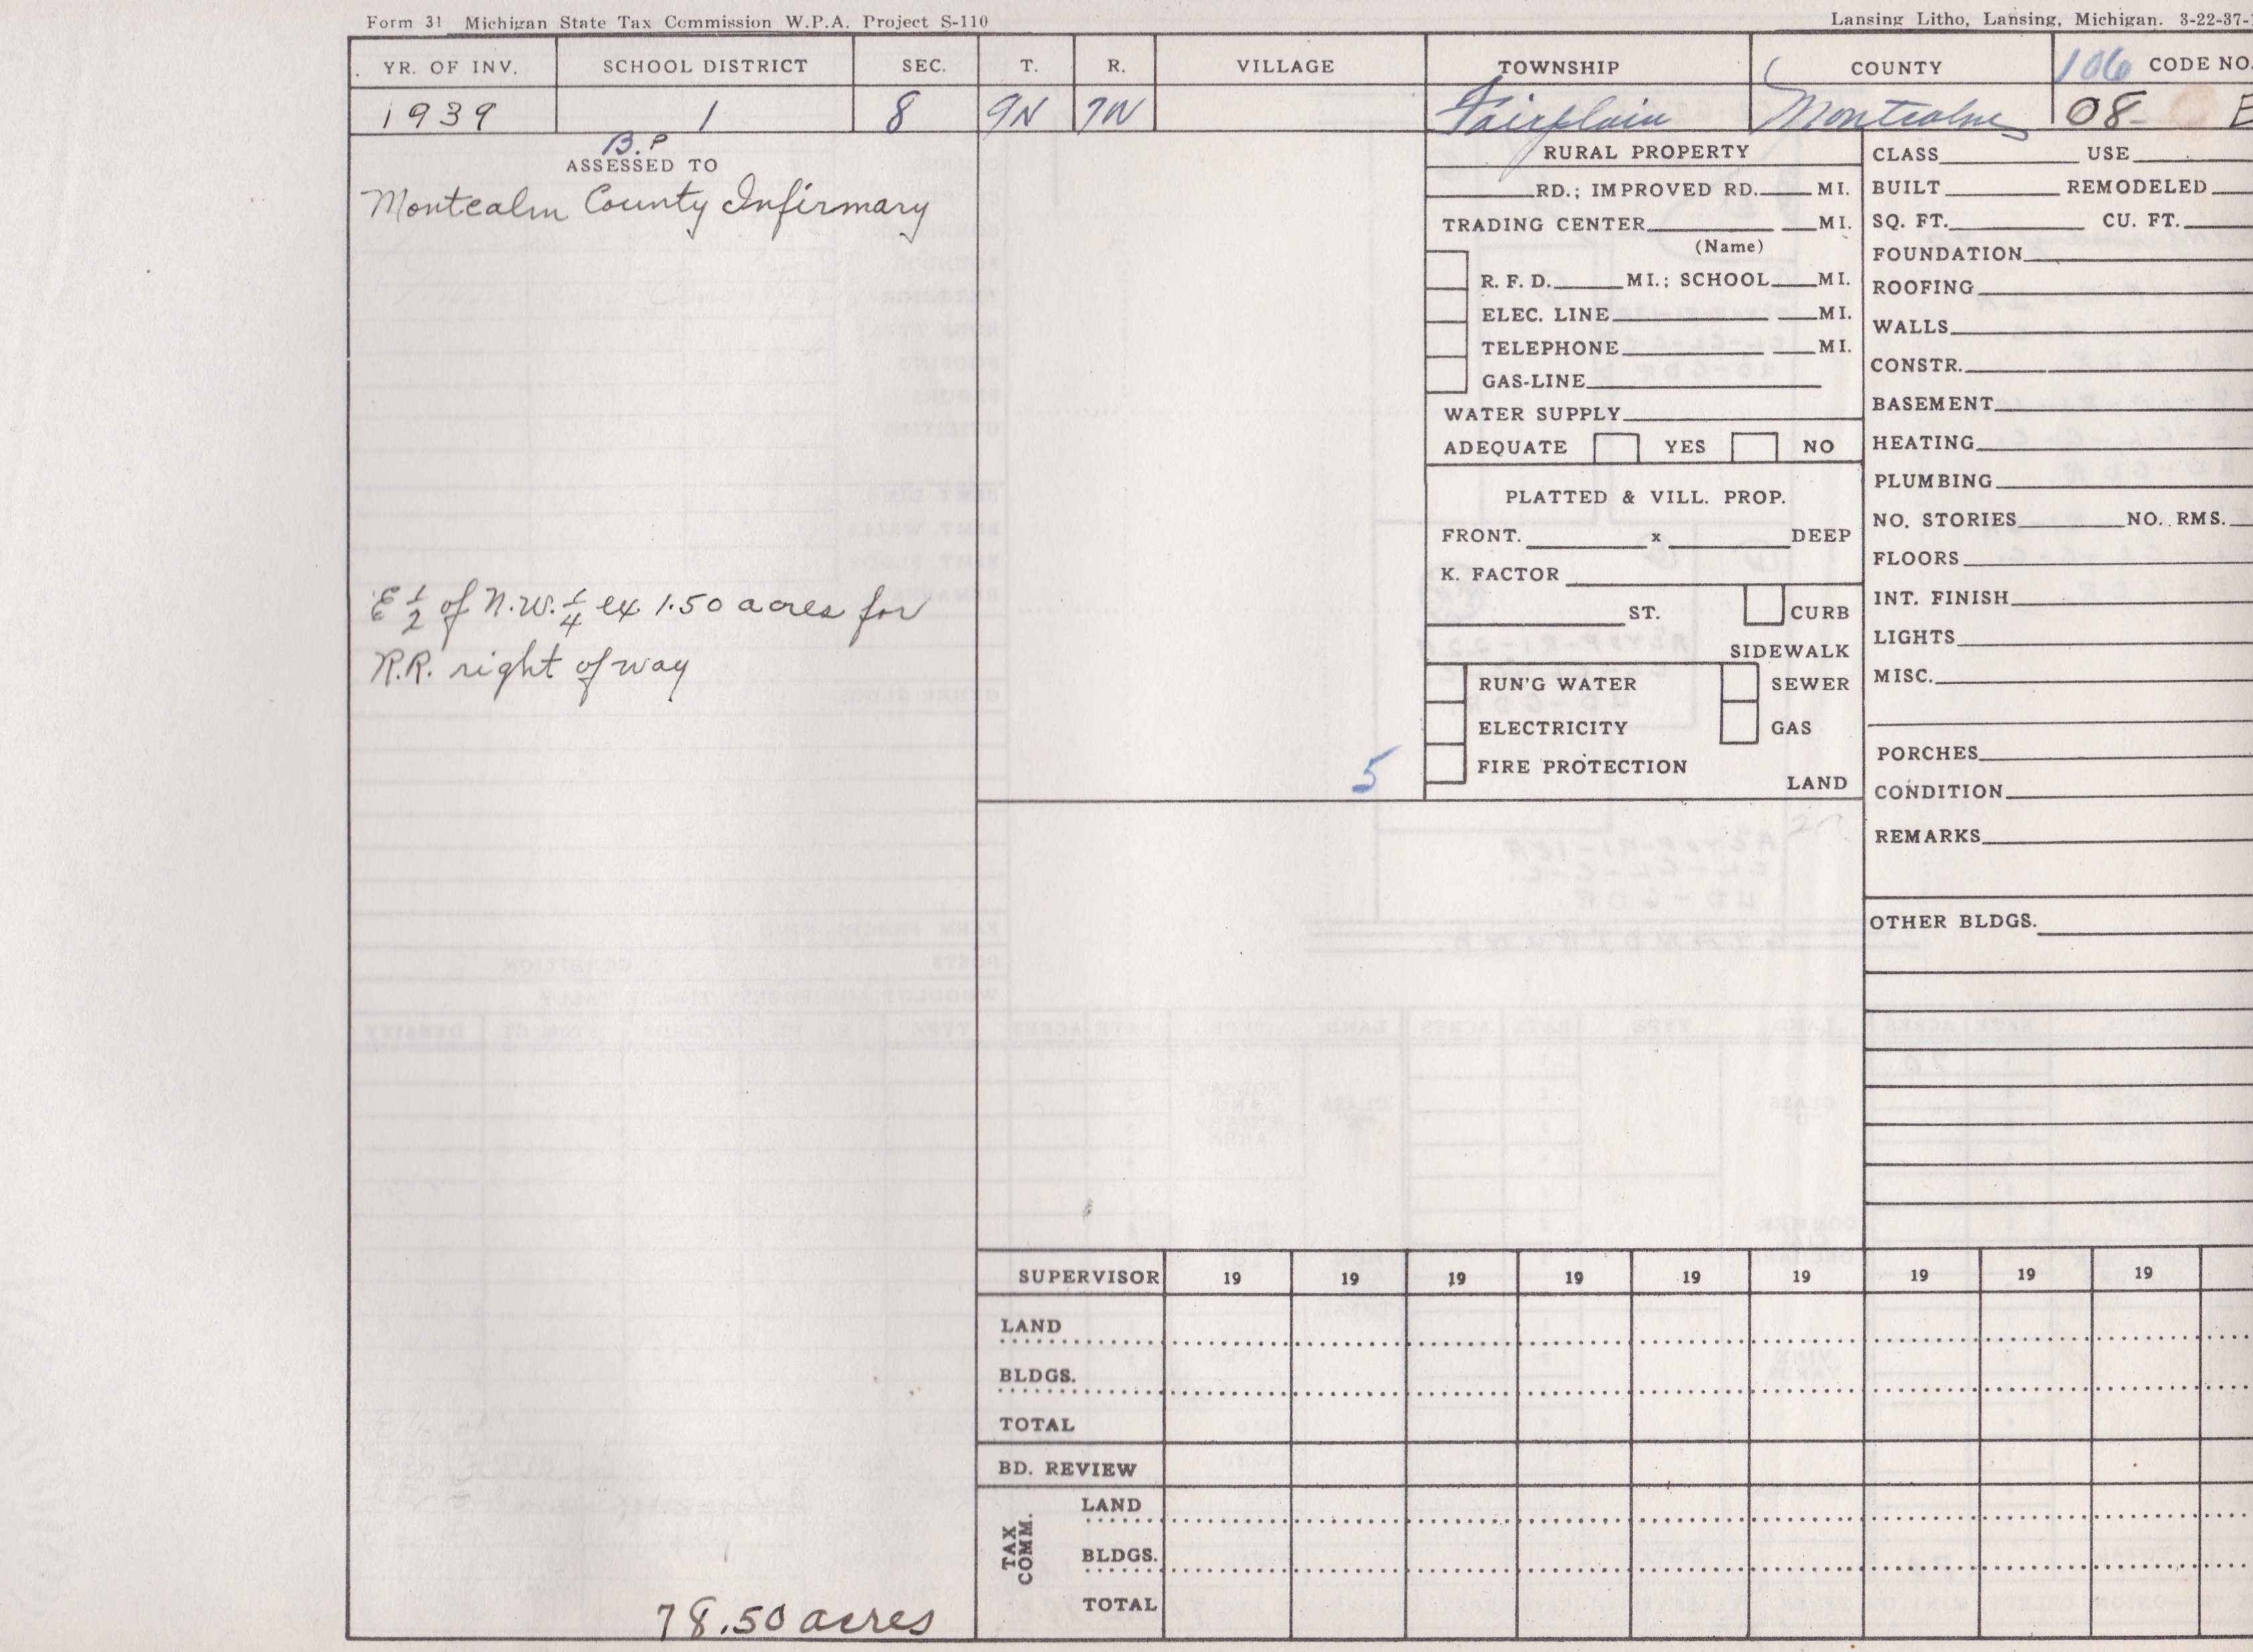 Form 31 Michigan State Tax Commission W.P.A. Project S-110
Lansing Litho, Lansing, Michigan. 3-22-37-1
YR. OF INV. SCHOOL DISTRICT SEC. T. R. VILLAGE TOWNSHIP COUNTY 106 CODE NO.
1939 1 8 9N 7W Fairplain Montcalm 08- E
B.P
ASSESSED TO
Montcalm County Infirmary
E 1/2 of N.W. 1/4 ex 1.50 acres for
R.R. right of way
78.50 acres
5
RURAL PROPERTY
RD.; IMPROVED RD. MI.
TRADING CENTER MI.
(Name)
R. F. D. MI.; SCHOOL MI.
ELEC. LINE MI.
TELEPHONE MI.
GAS-LINE
WATER SUPPLY
ADEQUATE YES NO
PLATTED & VILL. PROP.
FRONT. x DEEP
K. FACTOR
ST. CURB
SIDEWALK
RUN'G WATER SEWER
ELECTRICITY GAS
FIRE PROTECTION
LAND
CLASS USE
BUILT REMODELED
SQ. FT. CU. FT.
FOUNDATION
ROOFING
WALLS
CONSTR.
BASEMENT
HEATING
PLUMBING
NO. STORIES NO. RMS.
FLOORS
INT. FINISH
LIGHTS
MISC.
PORCHES
CONDITION
REMARKS
OTHER BLDGS.
SUPERVISOR 19 19 19 19 19 19 19 19 19
LAND
BLDGS.
TOTAL
BD. REVIEW
TAX COMM.
LAND
BLDGS.
TOTAL